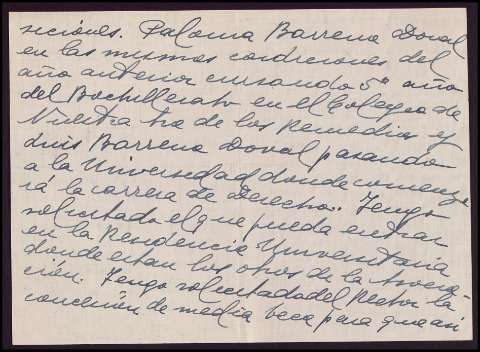 siciones. Paloma Barrena Doval
en las mismas condiciones del
año anterior cursando 5º año
del Bachillerato en el Colegio de
Nuestra Sra de los Remedios y
Luis Barrena Doval pasando
a la Universidad donde comenza
rá la carrera de Derecho. Tengo
solicitado el que pueda entrar
en la Residencia Universitaria
donde estan los otros de la Asocia-
ción. Tengo solicitado del Rector la
concesión de media beca para que asi